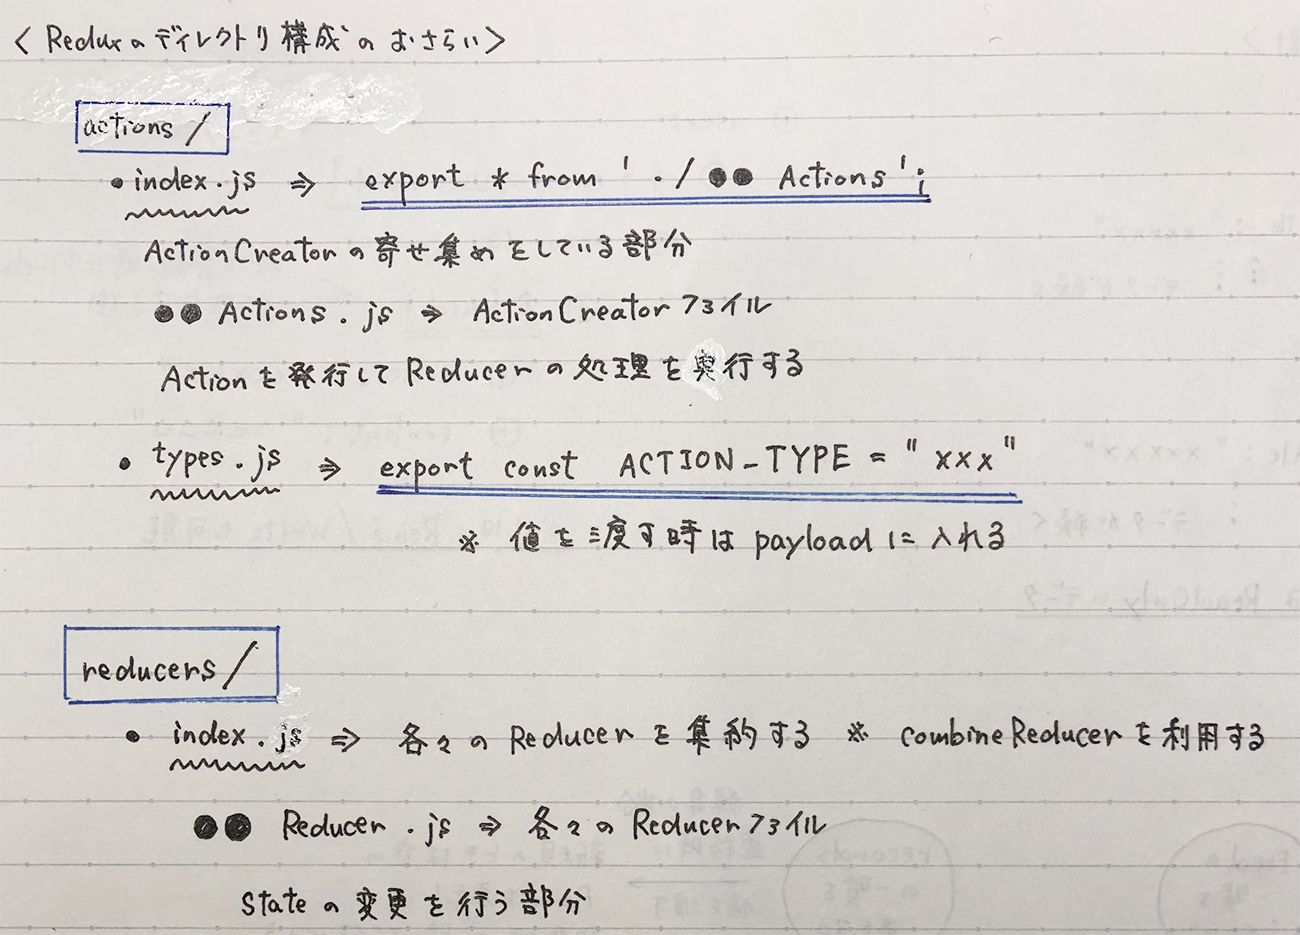 ＜Reduxのディレクトリ構成のおさらい＞
actions/
・index.js ⇒ export * from './●● Actions';
ActionCreatorの寄せ集めをしている部分
●● Actions.js ⇒ ActionCreatorファイル
Actionを発行してReducerの処理を実行する
・types.js ⇒ export const ACTION_TYPE = "xxx"
※ 値を渡す時はpayloadに入れる
reducers/
・index.js ⇒ 各々のReducerを集約する ※ combineReducerを利用する
●● Reducer.js ⇒ 各々のReducerファイル
Stateの変更を行う部分